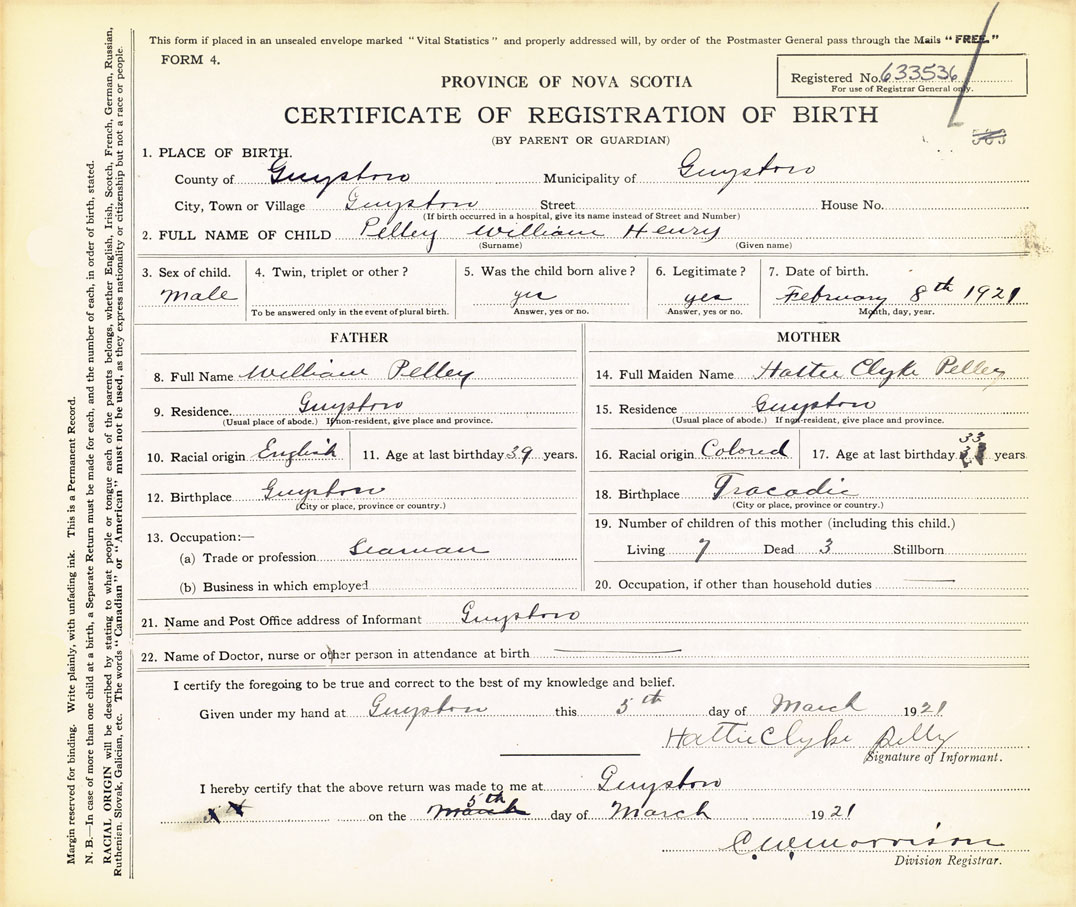 This form if placed in an unsealed envelope marked "Vital Statistics" and properly addressed will, by order of the Postmaster General pass through the Mails "FREE."
FORM 4.
Registered No. 633536
For use of Registrar General only.
PROVINCE OF NOVA SCOTIA
CERTIFICATE OF REGISTRATION OF BIRTH
(BY PARENT OR GUARDIAN)
1. PLACE OF BIRTH.
County of Guysboro Municipality of Guysboro
City, Town or Village Guysboro Street House No.
(If birth occurred in a hospital, give its name instead of Street and Number)
2. FULL NAME OF CHILD Pelley William Henry
(Surname) (Given name)
3. Sex of child. 4. Twin, triplet or other? 5. Was the child born alive? 6. Legitimate? 7. Date of birth.
male yes yes February 8th 1921
To be answered only in the event of plural birth. Answer, yes or no. Answer, yes or no. Month, day, year.
FATHER
8. Full Name William Pelley
9. Residence. Guysboro
(Usual place of abode.) If non-resident, give place and province.
10. Racial origin English 11. Age at last birthday 39 years.
12. Birthplace Guysboro
(City or place, province or country.)
13. Occupation:—
(a) Trade or profession Seaman
(b) Business in which employed
MOTHER
14. Full Maiden Name Hattie Clyke Pelley
15. Residence Guysboro
(Usual place of abode.) If non-resident, give place and province.
16. Racial origin Colored 17. Age at last birthday 33 years
18. Birthplace Tracadie
(City or place, province or country.)
19. Number of children of this mother (including this child.)
Living 7 Dead 3 Stillborn
20. Occupation, if other than household duties
21. Name and Post Office address of Informant Guysboro
22. Name of Doctor, nurse or other person in attendance at birth
I certify the foregoing to be true and correct to the best of my knowledge and belief.
Given under my hand at Guysboro this 5th day of March 1921
Hattie Clyke Pelly
Signature of Informant.
I hereby certify that the above return was made to me at Guysboro
on the 5th March day of March 1921
C. W. Morrison
Division Registrar.
Margin reserved for binding. Write plainly, with unfading ink. This is a Permanent Record.
N. B.—In case of more than one child at a birth, a Separate Return must be made for each, and the number of each, in order of birth, stated.
RACIAL ORIGIN will be described by stating to what people or tongue each of the parents belongs, whether English, Irish, Scotch, French, German, Russian,
Ruthenian, Slovak, Galician, etc. The words "Canadian" or "American" must not be used, as they express nationality or citizenship but not a race or people.